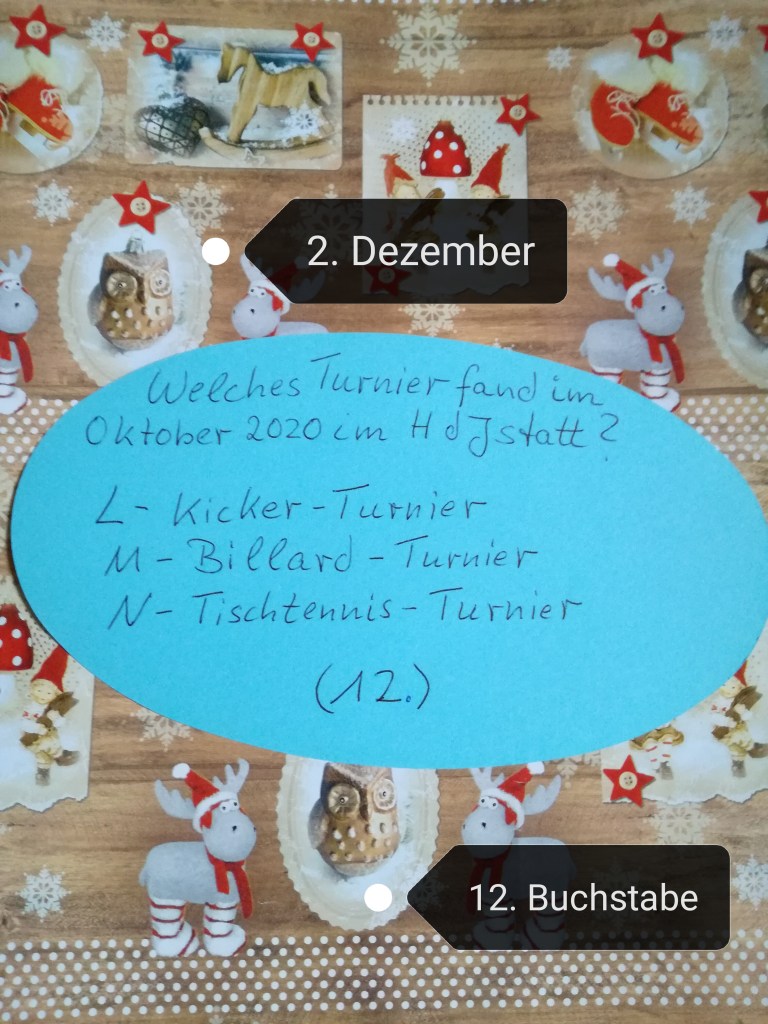 2. Dezember
Welches Turnier fand im
Oktober 2020 im HdJ statt?
L - Kicker - Turnier
M - Billard - Turnier
N - Tischtennis - Turnier
(12.)
12. Buchstabe